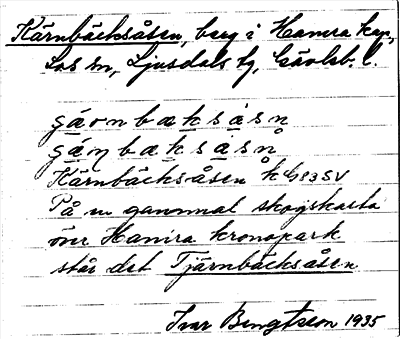 Kärnbäcksåsen, berg i Hamra kap.,
Los sn, Ljusdals tg, Gävleb. l.
gä́onbæksåsn
gä́ŋbæksåsn
Kärnbäcksåsen k G 83 SV
På en gammal skogskarta
över Hamra kronopark
står det Tjärnbäcksåsen
Ivar Bengtsson 1935